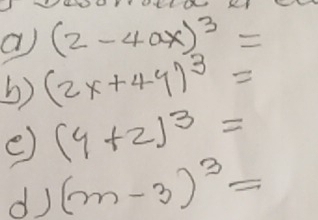 a) (2-4ax)³ =
b) (2x+4y)³ =
c) (y+2)³ =
d) (m-3)³ =